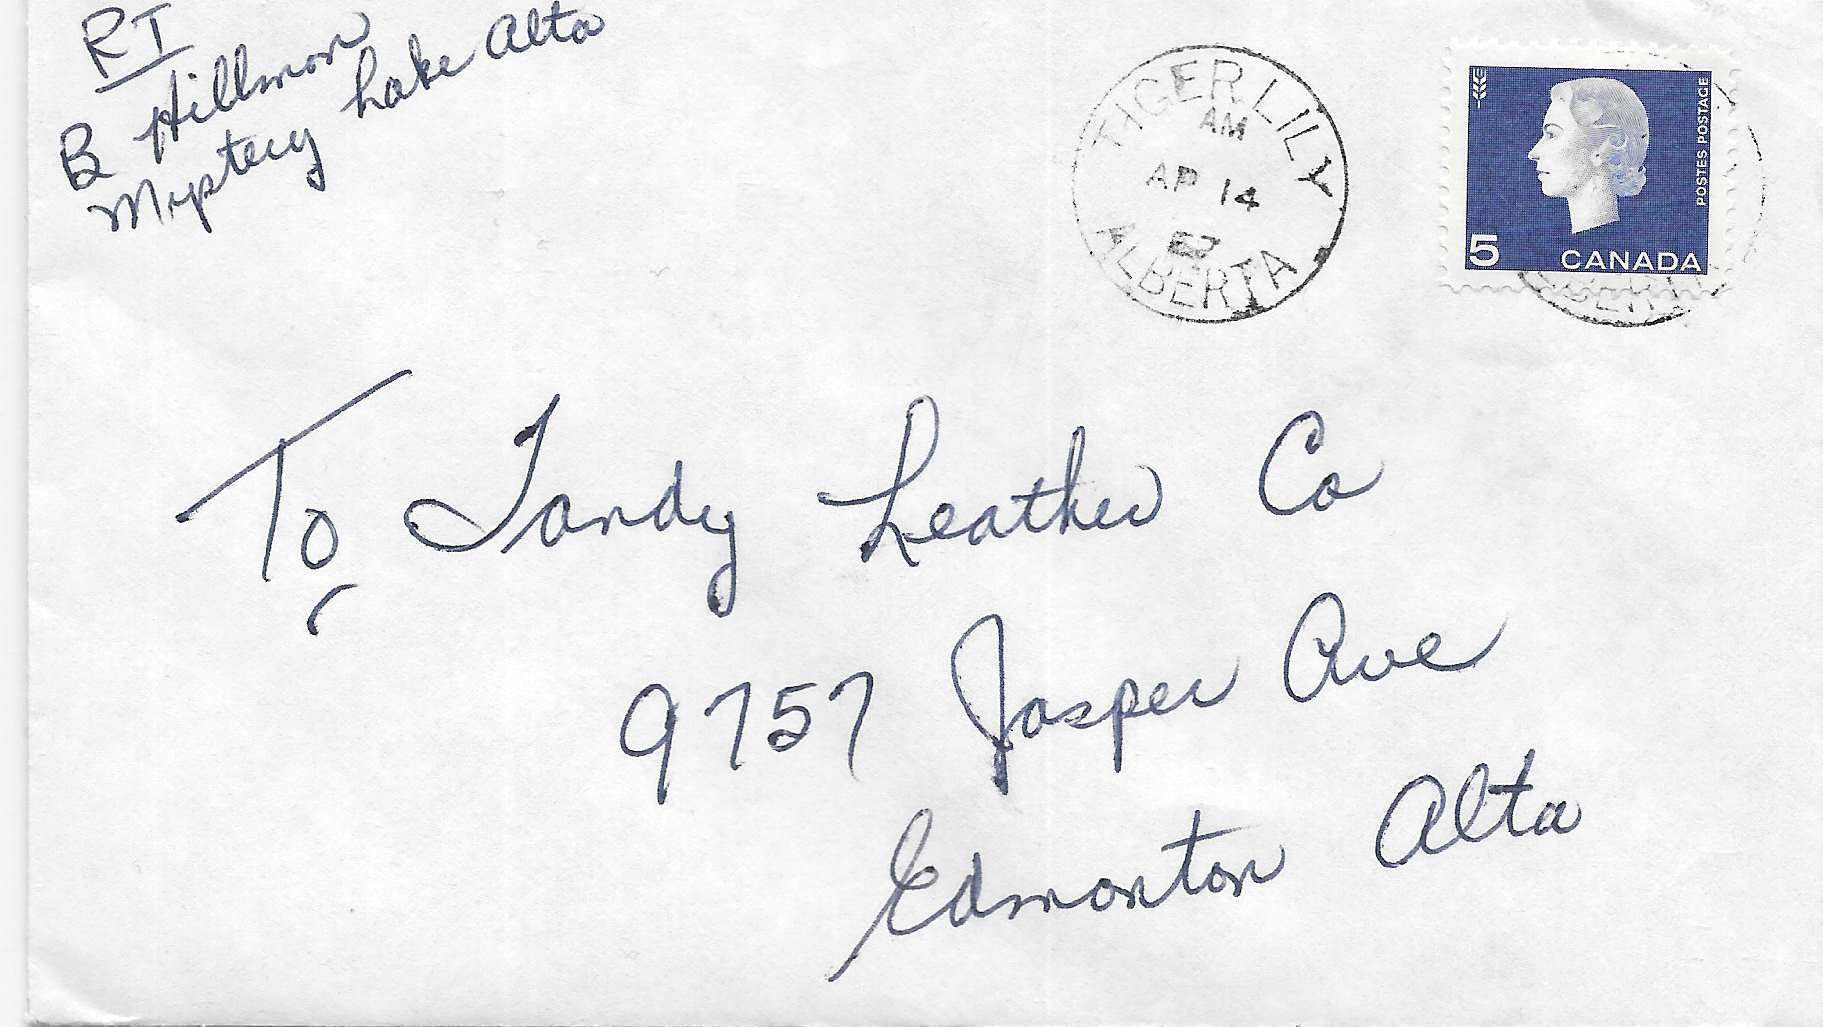 RT
B Hillman
Mystery Lake Alta
TIGER LILY
AM
AP 14
ALBERTA
POSTES POSTAGE
5
CANADA
To Tandy Leather Co
9757 Jasper Ave
Edmonton Alta